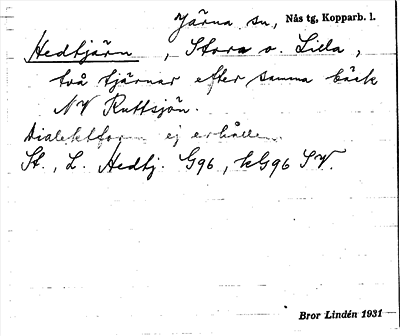 Järna sn, Nås tg, Kopparb. l.
Hedtjärn, Stora o. Lilla,
två tjärnar efter samma bäck
NV Ruttsjön.
Dialektform ej erhållen.
St., L. Hedtj. G96, kG96 SV.
Bror Lindén 1931